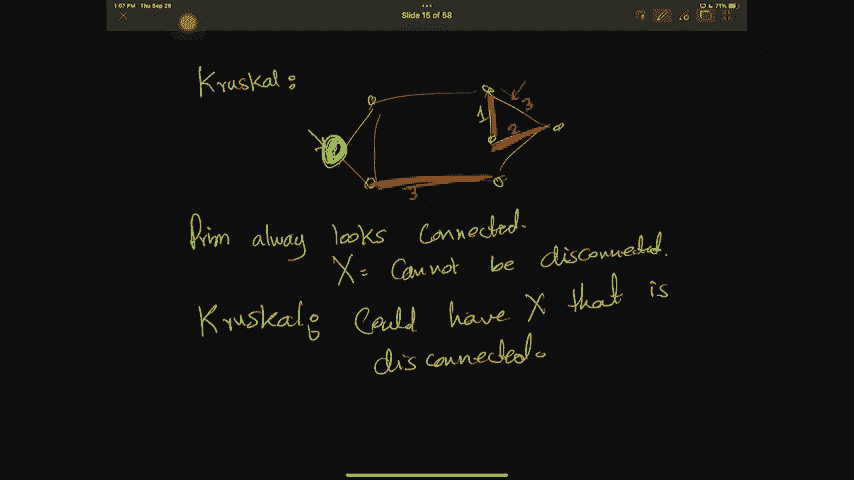 1:07 PM Thu Sep 28
Slide 15 of 58
71%
Kruskal:
1
3
2
3
Prim alway looks connected.
X = Cannot be disconnected.
Kruskal: Could have X that is
disconnected.